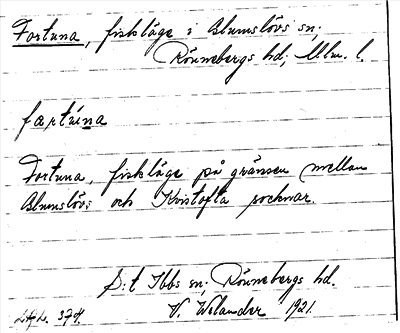 Fortuna, fiskläge i Glumslövs sn;
Rönnebergs hd; Mlm. l.
fartúna
Fortuna, fiskläge på gränsen mellan
Glumslövs och Kvistofta socknar.
S:t Ibbs sn; Rönnebergs hd.
V. Welander 1921.